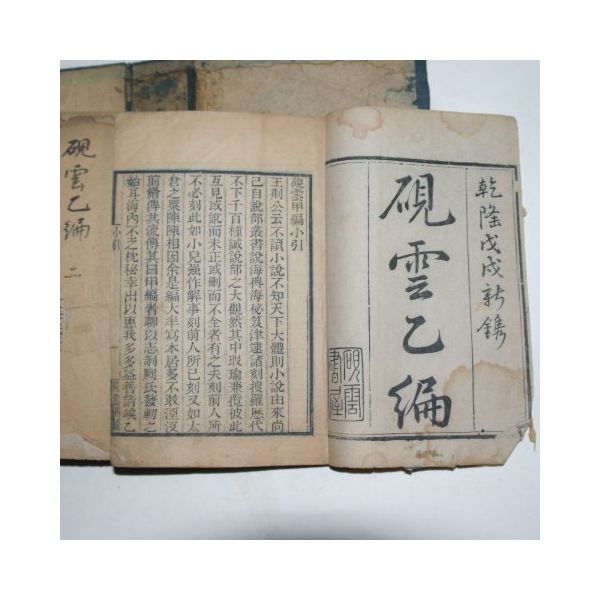 乾隆戊戌新鐫
硯雲乙編
硯雲書屋
硯雲甲編小引
王荆公云不讀小說不知天下大體則小說由來尚
已自說部叢書說海稗海秘笈津逮諸刻搜羅歷代
不下千百種誠說部之大觀然其中瑕瑜兼攬彼此
互見或說而未正或刪而不全者有之夫刻前人所
不必刻此如小兒強作解事刻前人所已刻又如太
倉之粟陳陳相因余是編大半寫本居多不敢湮沒
前脩傳其流傳其曰甲編者聊以志制軻氏發軔之
始耳海內不乏枕秘幸出以惠我多多益善請俟乙
小引
硯雲乙編
二